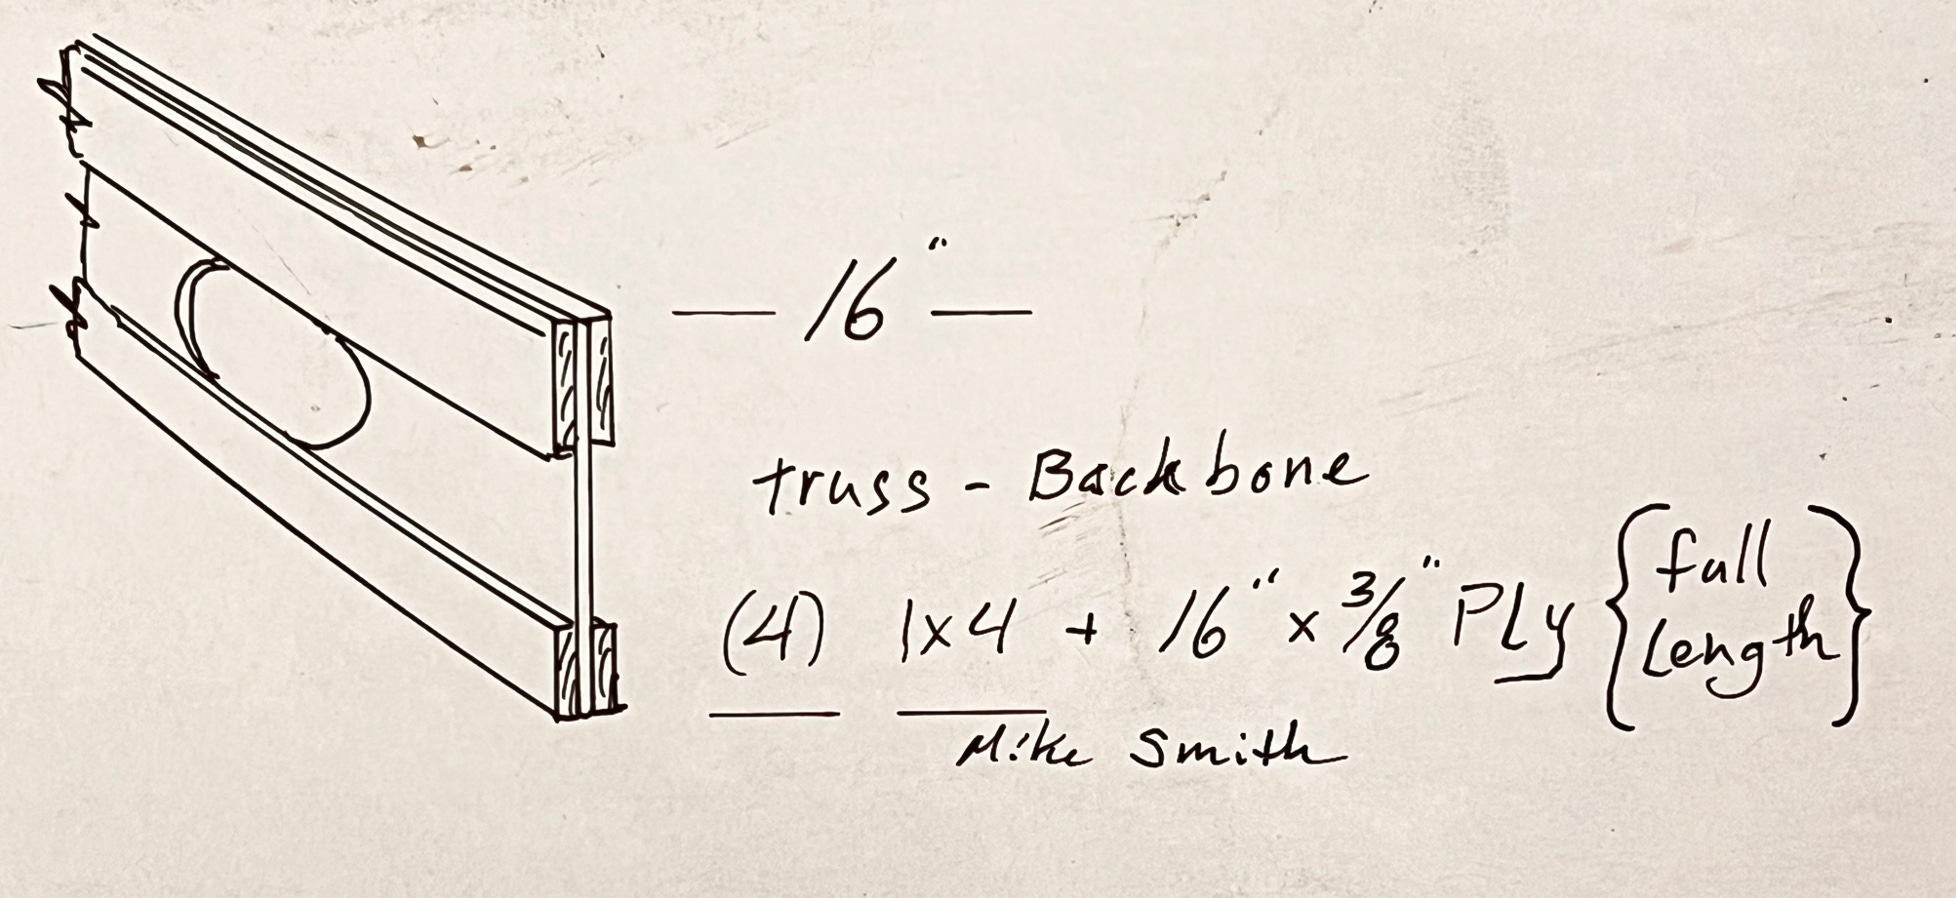 — 16" —
truss - Backbone
(4) 1x4 + 16" x 3/8" PLy {full length}
Mike Smith